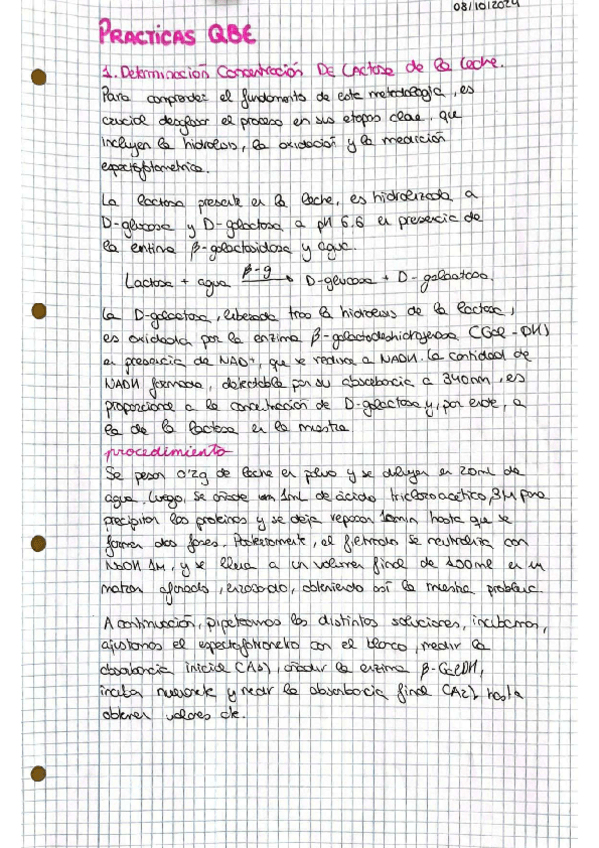 08/10/2024
PRACTICAS QBE
1. Determinación Concentración DE Lactosa de la leche.
Para comprender el fundamento de esta metodología, es
crucial desglosar el proceso en sus etapas clave, que
incluyen la hidrólisis, la oxidación y la medición
espectrofotométrica.
La lactosa presente en la leche, es hidrolizada a
D-glucosa y D-galactosa a pH 6.6 en presencia de
la enzima β-galactosidasa y agua.
Lactosa + agua β-g → D-glucosa + D-galactosa.
La D-galactosa, liberada tras la hidrólisis de la lactosa,
es oxidada por la enzima β-galactodeshidrogenasa (Gal-DH)
en presencia de NAD+, que se reduce a NADH. La cantidad de
NADH formada, detectable por su absorbancia a 340nm, es
proporcional a la concentración de D-galactosa y, por ende, a
la de la lactosa en la muestra.
procedimiento
Se pesan 0'2g de leche en polvo y se diluyen en 20ml de
agua. Luego, se añade 1ml de ácido tricloroacético, 3M para
precipitar las proteínas y se deja reposar 10min hasta que se
forman dos fases. Posteriormente, el filtrado se neutraliza con
NaOH 1M, y se lleva a un volumen final de 100ml en un
matraz aforado, enrasando, obteniendo así la muestra problema.
A continuación, pipeteamos las distintas soluciones, incubamos,
ajustamos el espectrofotómetro con el blanco, medir la
absorbancia inicial (A1), añadir la enzima β-GalDH,
incubar nuevamente y medir la absorbancia final (A2) hasta
obtener valores de.